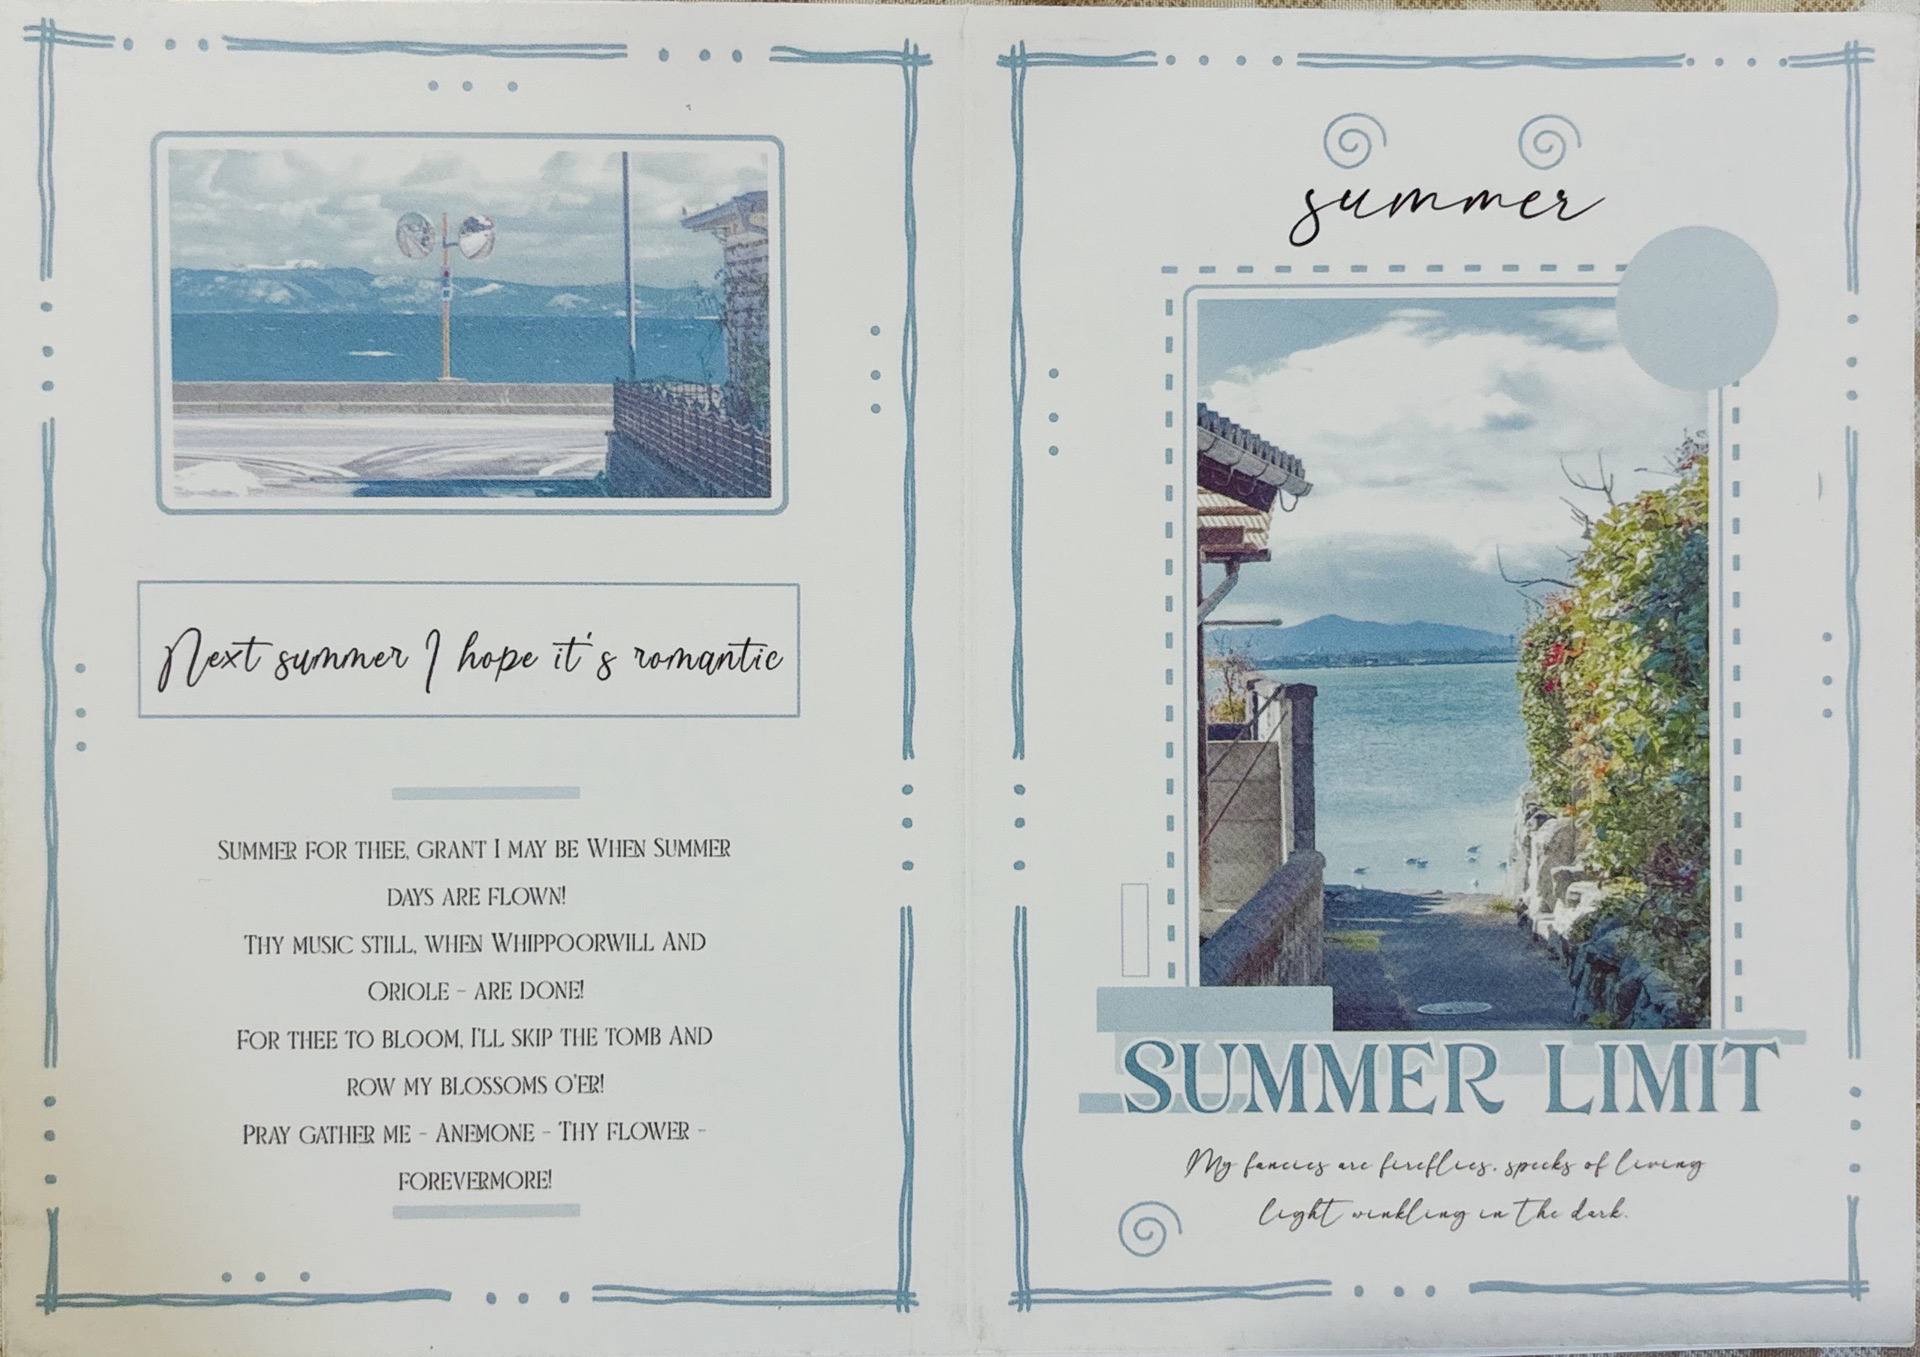 Next summer I hope it's romantic
SUMMER FOR THEE, GRANT I MAY BE WHEN SUMMER
DAYS ARE FLOWN!
THY MUSIC STILL, WHEN WHIPPOORWILL AND
ORIOLE - ARE DONE!
FOR THEE TO BLOOM, I'LL SKIP THE TOMB AND
ROW MY BLOSSOMS O'ER!
PRAY GATHER ME - ANEMONE - THY FLOWER -
FOREVERMORE!
summer
SUMMER LIMIT
My fancies are fireflies. specks of living
light winkling in the dark.